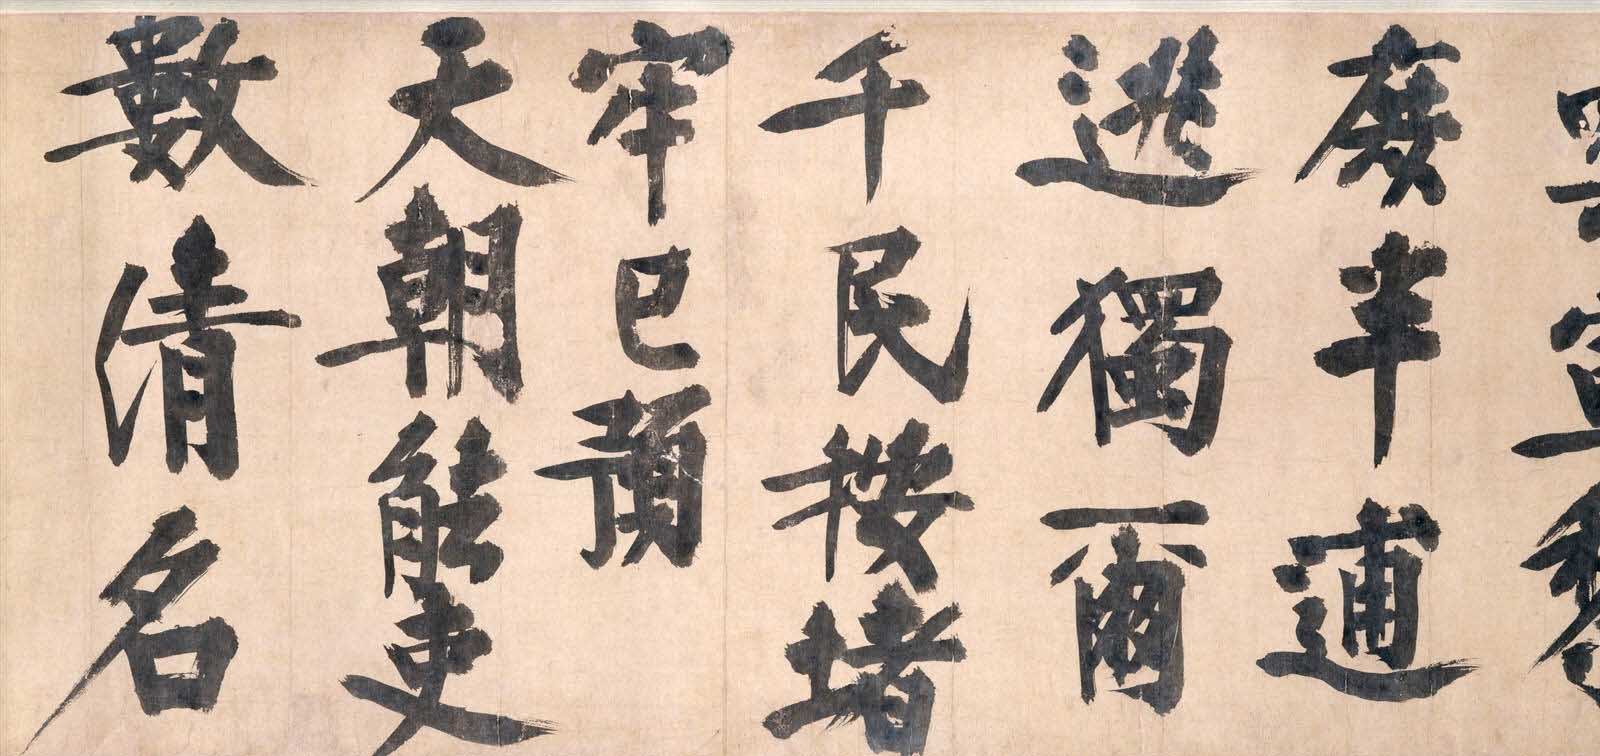 庶半逋
逃獨爾
千民按堵
牢已預
天朝能吏
數清名